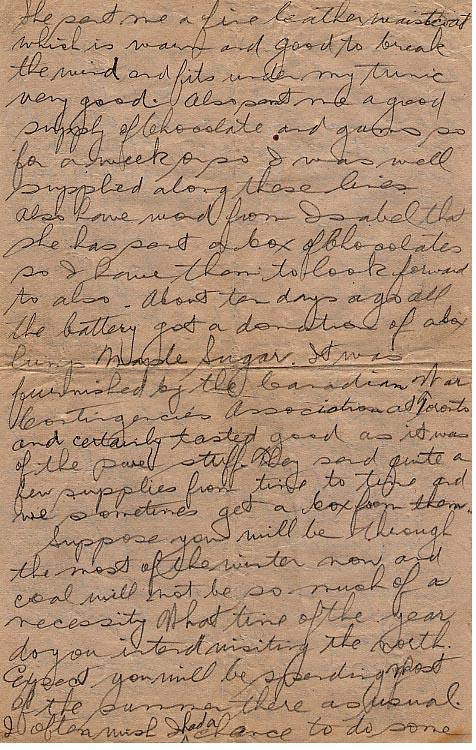 She sent me a fine leather waistcoat
which is warm and good to break
the wind and fits under my tunic
very good. Also sent me a good
supply of Chocolate and gums so
for a week or so I was well
supplied along these lines
Also have word from Isabel that
she has sent a box of Chocolates
so I have them to look forward
to also. About ten days ago all
the battery got a donation of a box
lump Maple Sugar. It was
furnished by the Canadian War
Contingencies Association at Toronto
and certainly tasted good as it was
of the pure stuff. They send quite a
few supplies from time to time and
we sometimes get a box from them.
Suppose you will be through
the most of the winter now and
coal will not be so much of a
necessity What time of the year
do you intend visiting the North.
Expect you will be spending most
of the summer there as usual.
I often wish I had a chance to do some